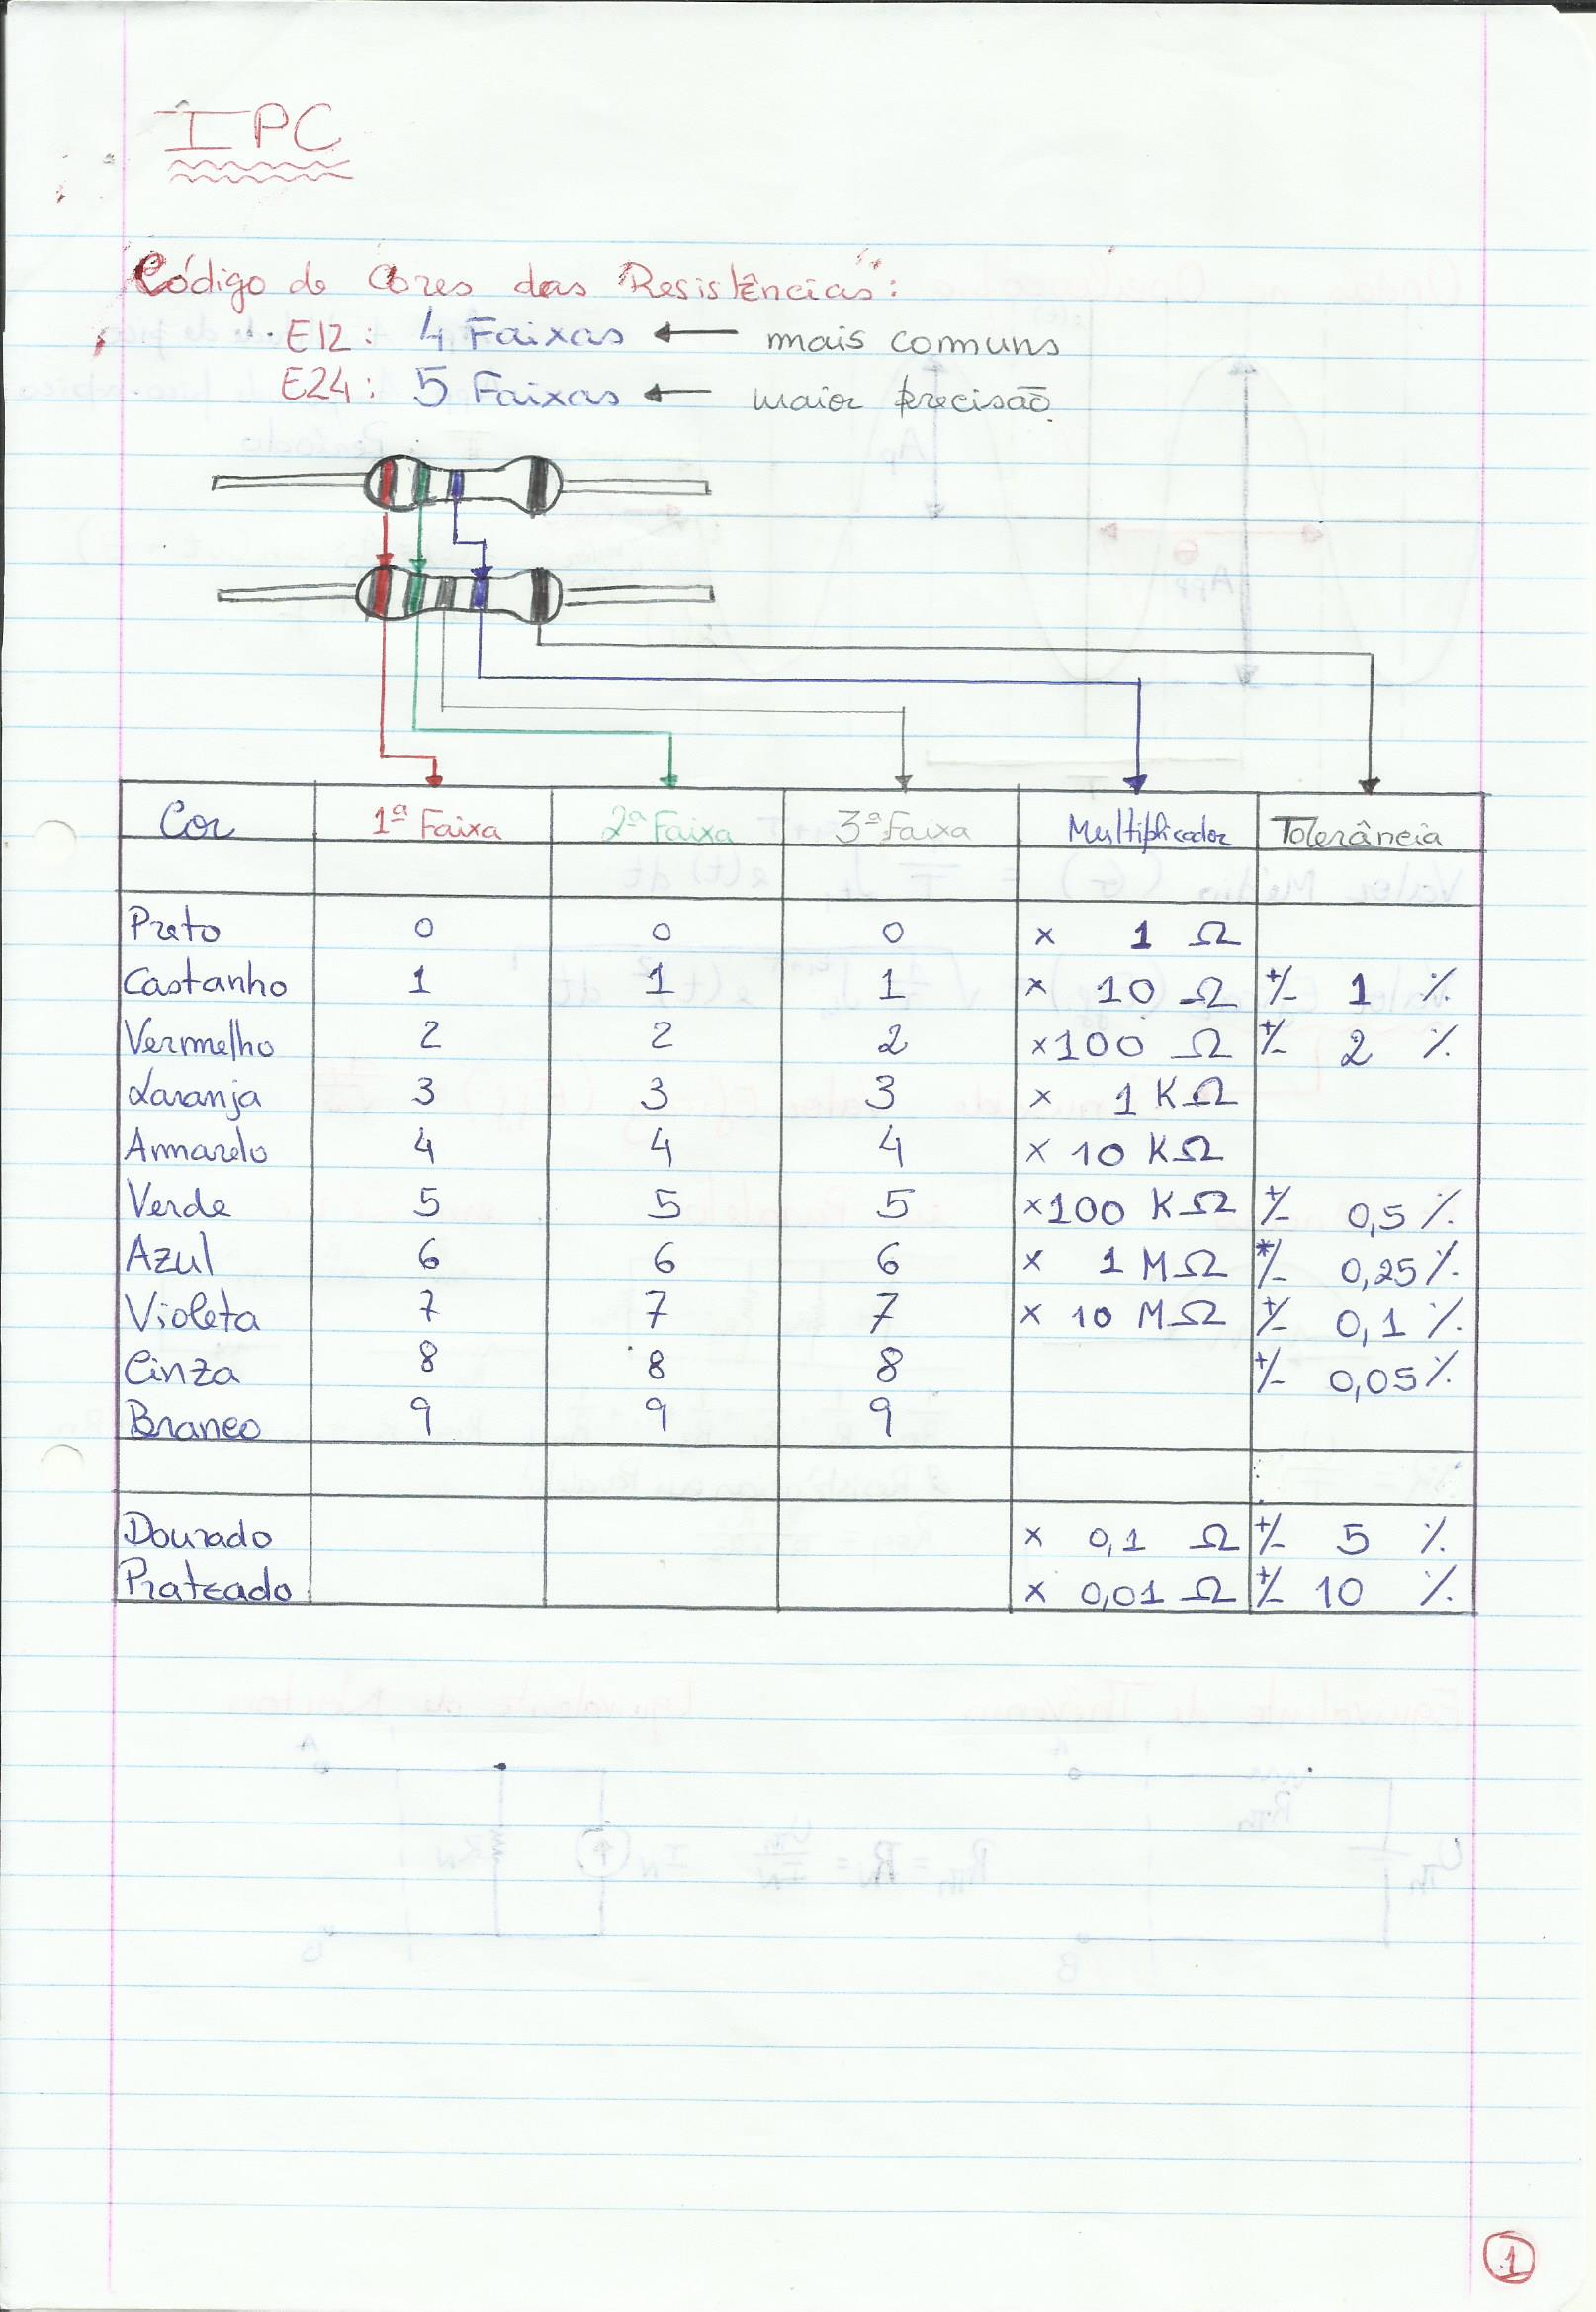 IPC
Código de Cores das Resistências:
E12: 4 Faixas ← mais comuns
E24: 5 Faixas ← maior precisão
Cor 1ª Faixa 2ª Faixa 3ª Faixa Multiplicador Tolerância
Preto 0 0 0 x 1 Ω
Castanho 1 1 1 x 10 Ω +/- 1 %
Vermelho 2 2 2 x 100 Ω +/- 2 %
Laranja 3 3 3 x 1 KΩ
Amarelo 4 4 4 x 10 KΩ
Verde 5 5 5 x 100 KΩ +/- 0,5 %
Azul 6 6 6 x 1 MΩ +/- 0,25 %
Violeta 7 7 7 x 10 MΩ +/- 0,1 %
Cinza 8 8 8 +/- 0,05 %
Branco 9 9 9
Dourado x 0,1 Ω +/- 5 %
Prateado x 0,01 Ω +/- 10 %
1